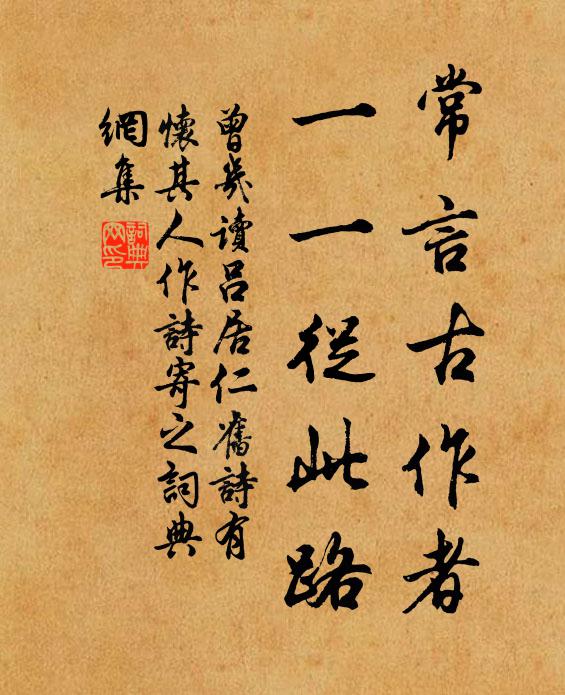 常言古作者
一一從此路
曾幾讀呂居仁舊詩有
懷其人作詩寄之詞典
網集
詞典
网印